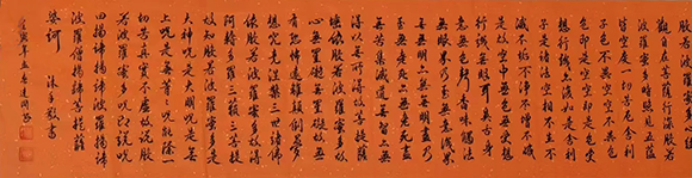 觀自在菩薩行深般若
波羅蜜多時照見五蘊
皆空度一切苦厄舍利
子色不異空空不異色
色即是空空即是色受
想行識亦復如是舍利
子是諸法空相不生不
滅不垢不淨不增不減
是故空中無色無受想
行識無眼耳鼻舌身
意無色聲香味觸法
無眼界乃至無意識界
無無明亦無無明盡乃
至無老死亦無老死盡
無苦集滅道無智亦無
得以無所得故菩提薩
埵依般若波羅蜜多故
心無罣礙無罣礙故無
有恐怖遠離顛倒夢
想究竟涅槃三世諸佛
依般若波羅蜜多故得
阿耨多羅三藐三菩提
故知般若波羅蜜多是
大神咒是大明咒是無
上咒是無等等咒能除一
切苦真實不虛故說般
若波羅蜜多咒即說咒
曰揭諦揭諦波羅揭諦
波羅僧揭諦菩提薩
婆訶